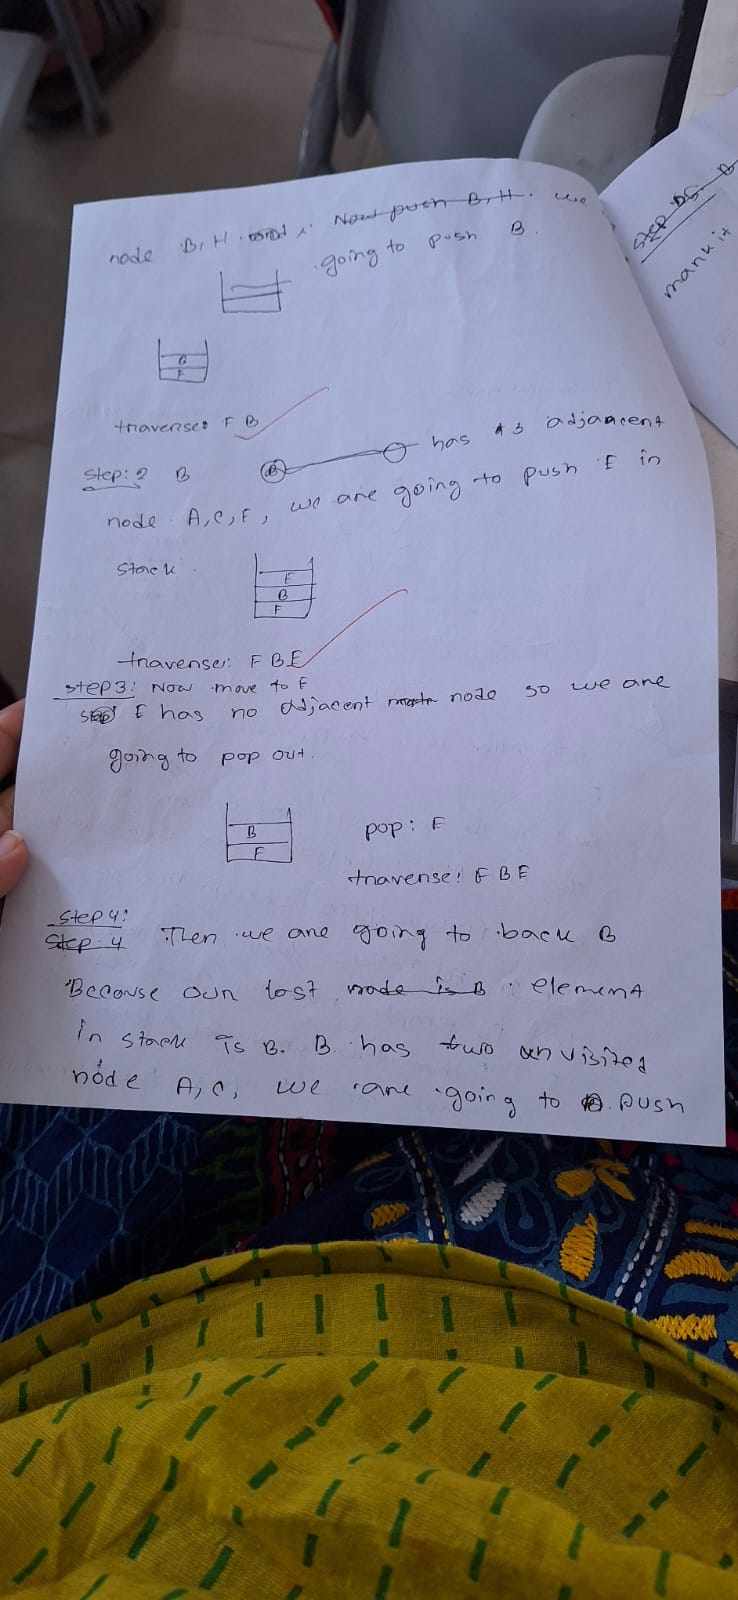 node B, H. Now push B, H. we
going to push B.
B
F
traverse: F B
Step: 2 B B has 3 adjancent
node A, C, E, we are going to push E in
Stack
E
B
F
traverse: F B E
step3: Now move to E
E has no adjacent node so we are
going to pop out.
B
F
pop: E
traverse: F B E
Step 4:
Step 4 Then we are going to back B
Because our last node is B. element
in stack is B. B has two unvisited
node A, C, we are going to push
step
mark it